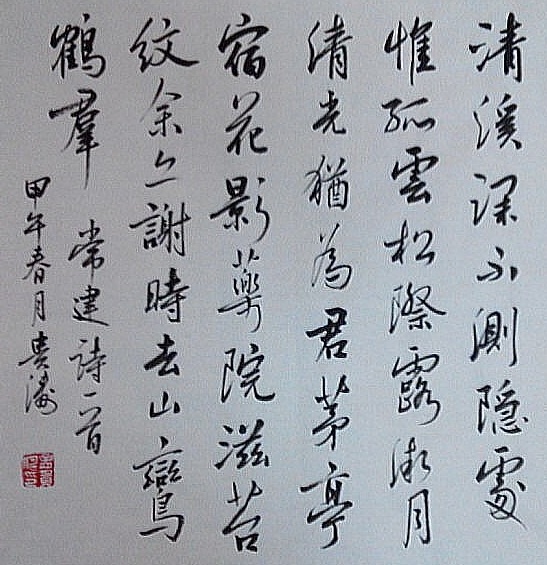 清溪深不測隐處
惟孤雲松際露微月
清光猶為君茅亭
宿花影藥院滋苔
紋余亦謝時去山鸞
鶴羣
常建詩一首
甲午春月贵